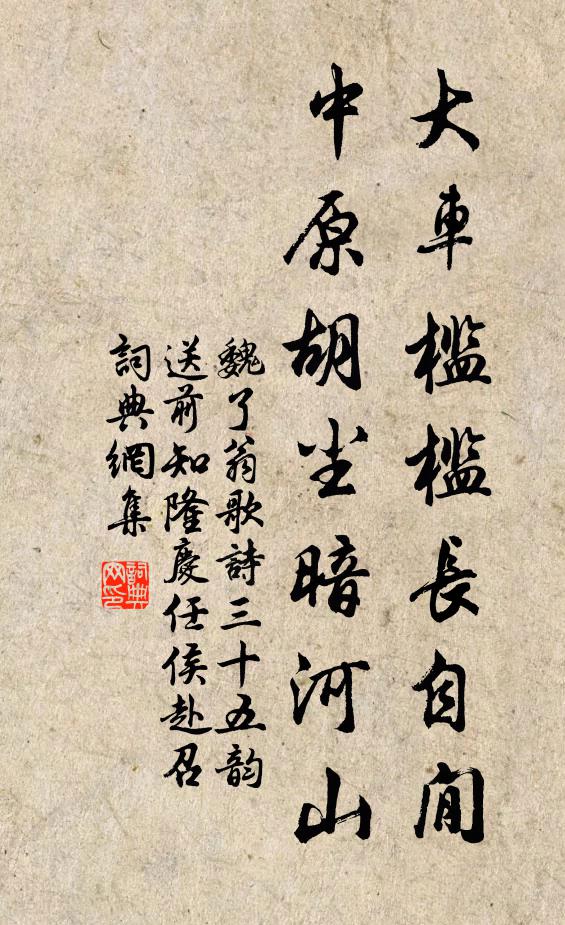 大車檻檻長自閒
中原胡尘暗河山
魏了翁歌詩三十五韵
送前知隆慶任侯赴召
詞典網集
詞典网印